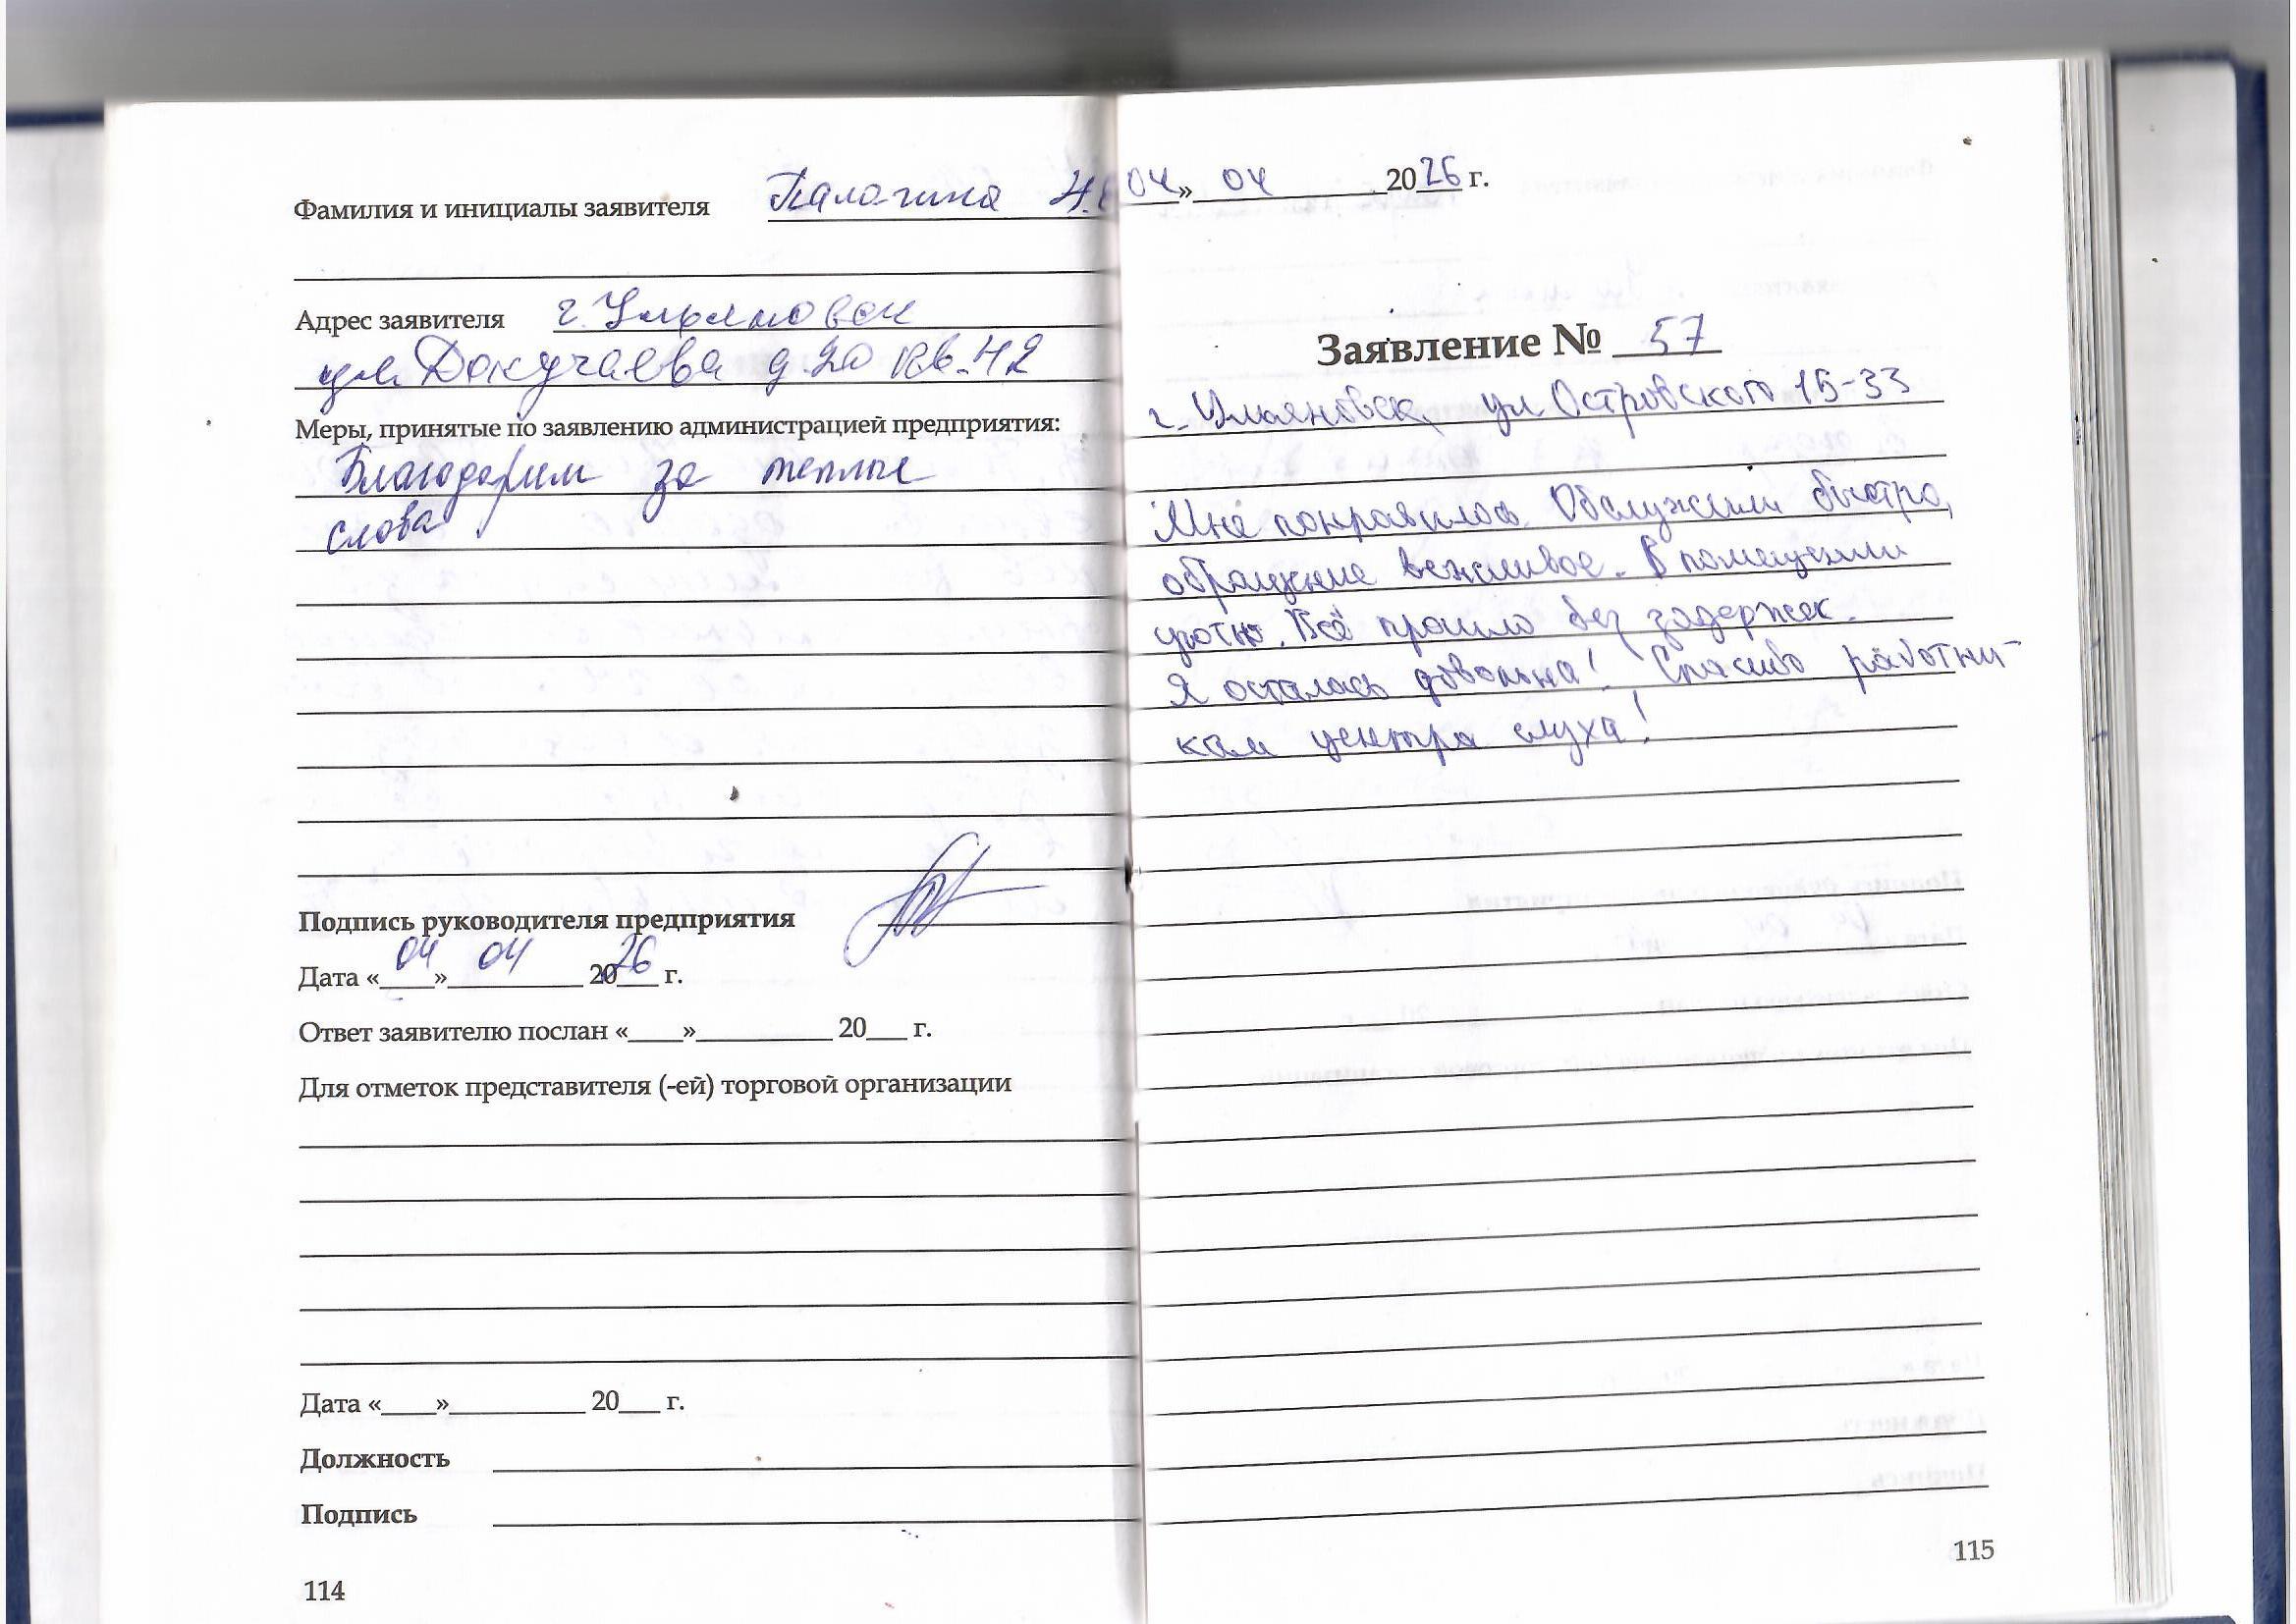 Фамилия и инициалы заявителя Палагина Н.
Адрес заявителя г. Ульяновск
ул. Докучаева д.20 кв.42
Меры, принятые по заявлению администрацией предприятия:
Благодарим за теплые
слова
Подпись руководителя предприятия
Дата «04» 04 2026 г.
Ответ заявителю послан «____»__________ 20___ г.
Для отметок представителя (-ей) торговой организации
Дата «____»__________ 20___ г.
Должность
Подпись
114
04» 04 2026 г.
Заявление № 57
г. Ульяновск ул. Островского 15-33
Мне понравилось. Обслужили быстро,
обращение вежливое. В помещении
уютно. Всё прошло без задержек.
Я осталась довольна! Спасибо работни-
кам центра слуха!
115